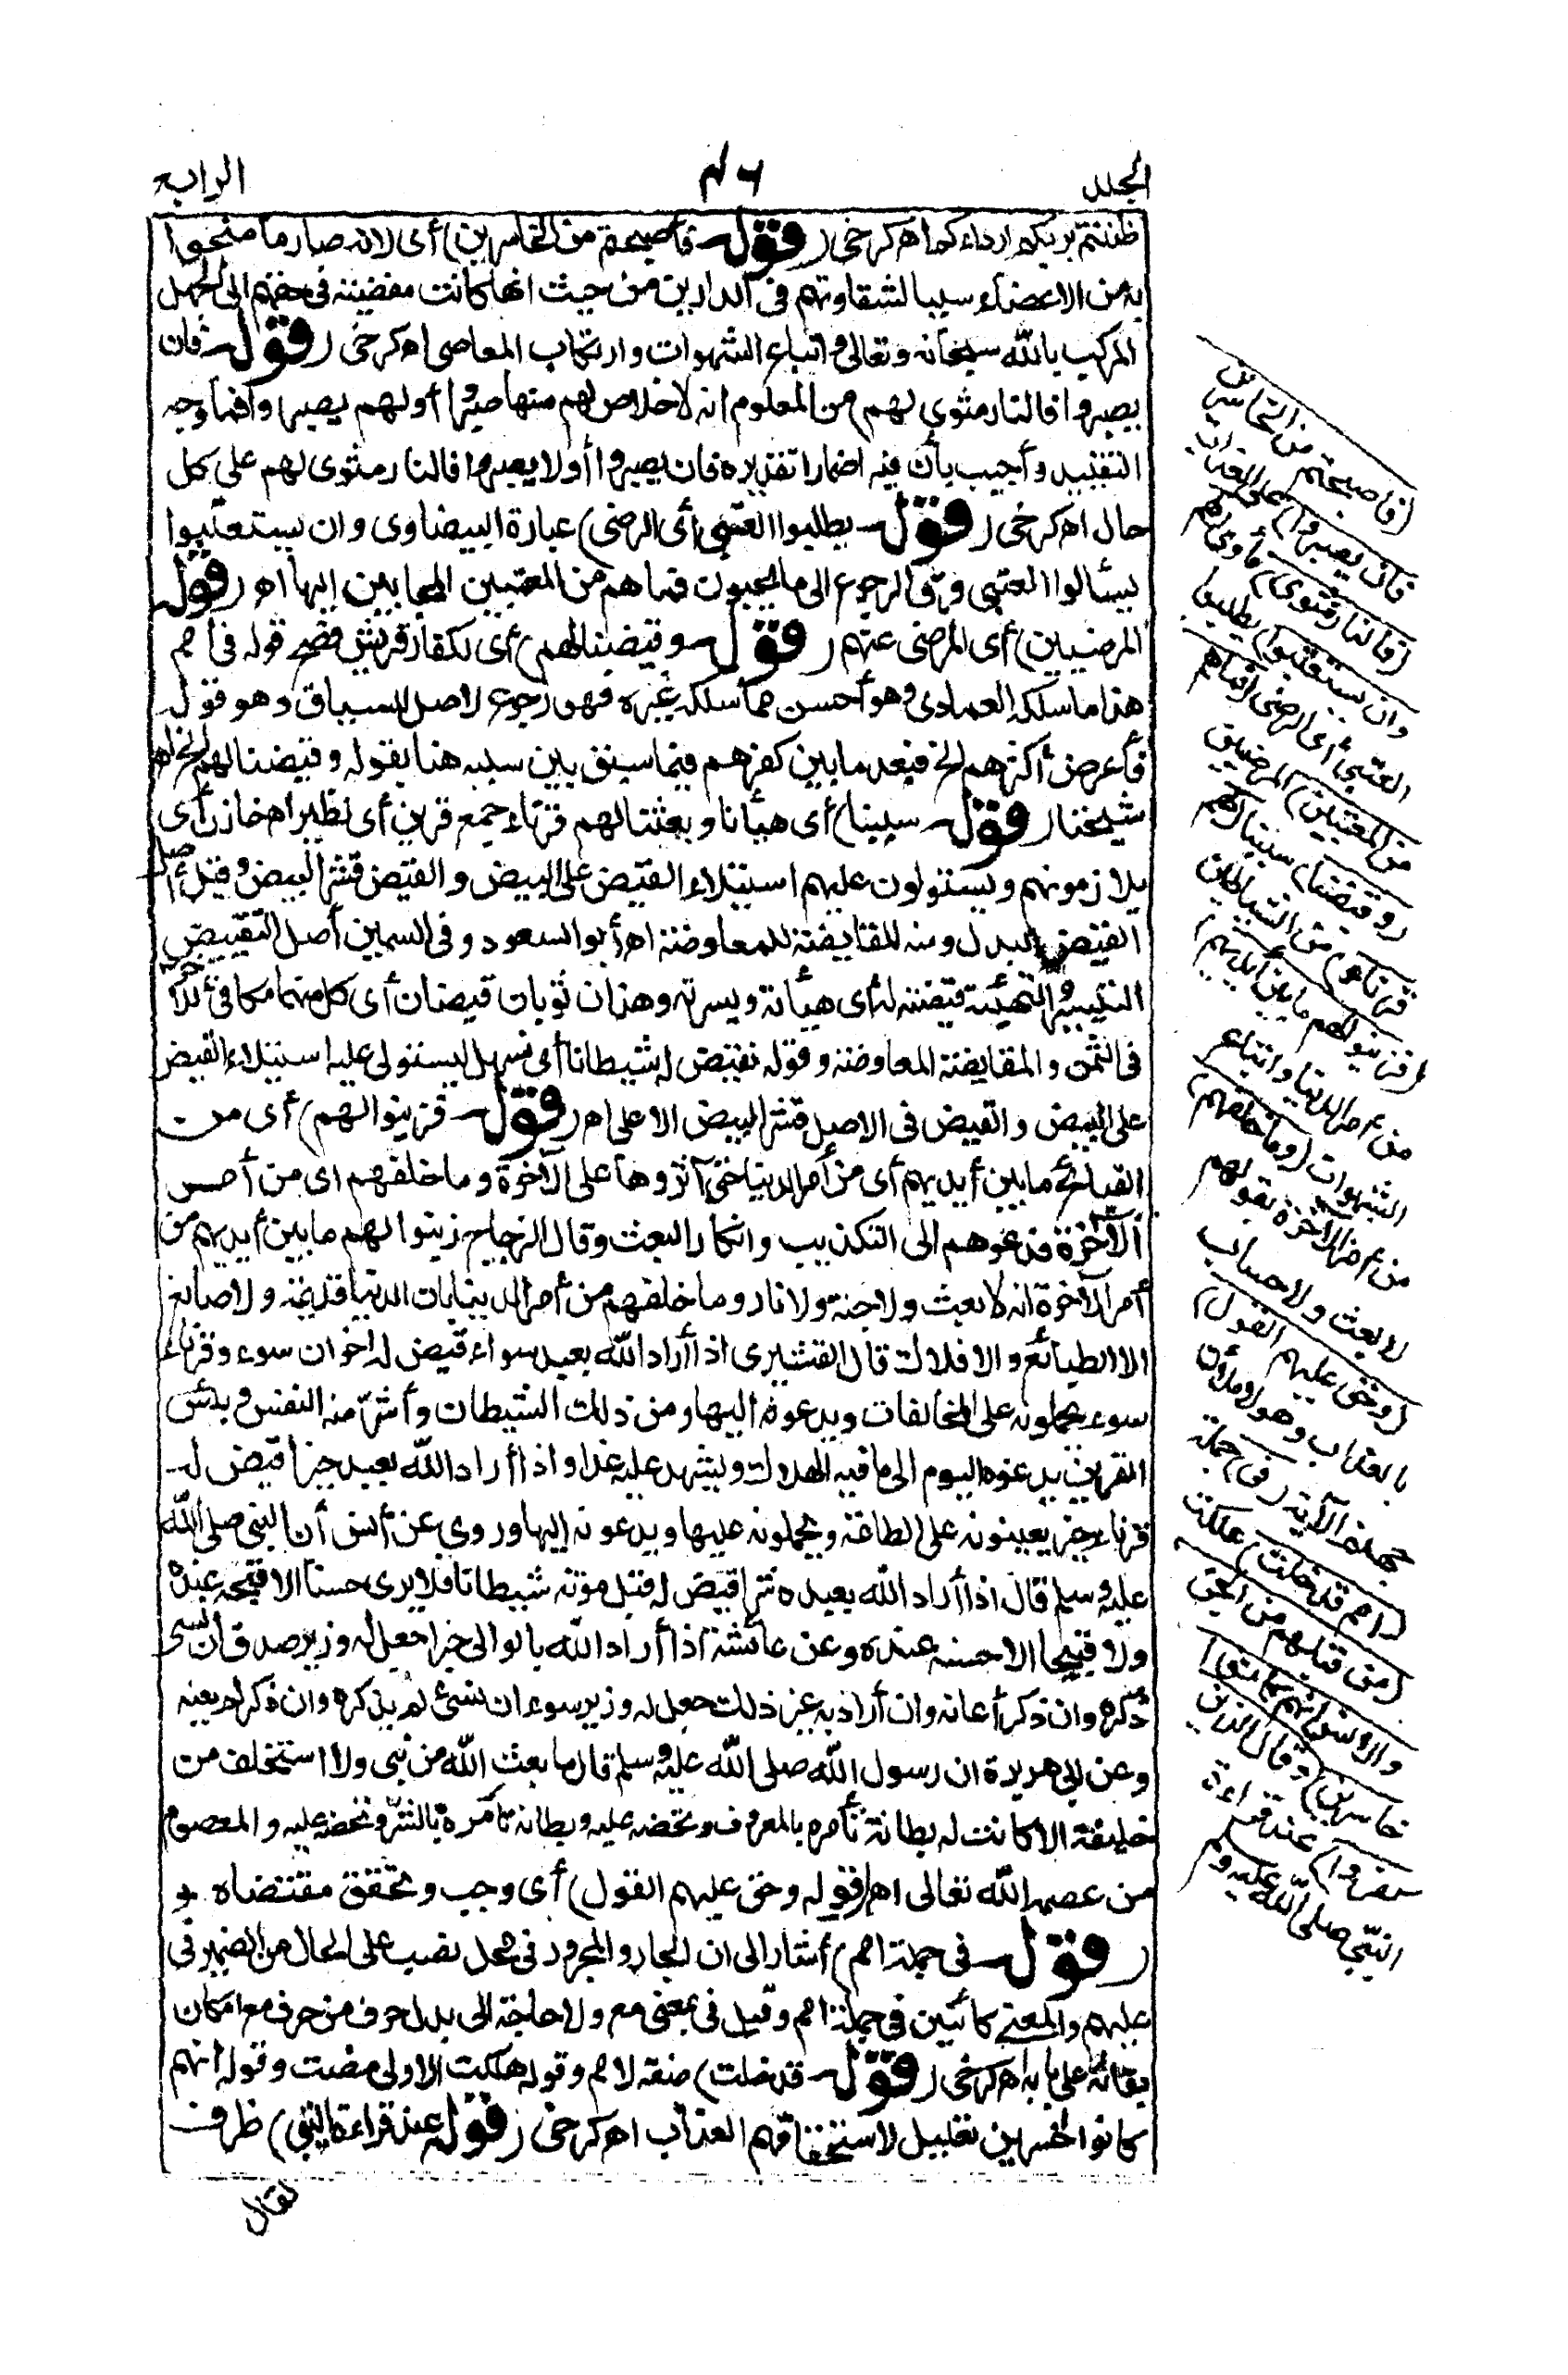 المجلد
٤٦
الرابع
ظننتم بربكم ارداءكم اهـ كرخى (قوله فأصبحتم من الخاسرين) أى لانه صار ما منحوا
به من الاعضاء سببا لشقاوتهم فى الدارين من حيث انها كانت مفضية فى حقهم الى الجهل
المركب بالله سبحانه وتعالى واتباع الشهوات وارتكاب المعاصى اهـ كرخى (قوله فان
يصبروا فالنار مثوى لهم) من المعلوم انه لا خلاص لهم منها صبروا أو لم يصبروا فما وجه
التقييد وأجيب بأن فيه اضمارا تقديره فان يصبروا أو لا يصبروا فالنار مثوى لهم على كل
حال اهـ كرخى (قوله يطلبوا العتبى أى الرضى) عبارة البيضاوى وان يستعتبوا
يسألوا العتبى وهى الرجوع الى ما يحبون فما هم من المعتبين المجابين إليها اهـ (قوله
المرضيين) أى المرضى عنهم (قوله وقيضنا لهم) أى لكفار قريش
هذا ما سلكه العمادى وهو أحسن مما سلكه غيره فهو رجوع لاصل السياق وهو قوله
فأعرض أكثرهم الخ فبعد ما بين كفرهم فيما سبق بين سببه هنا بقوله وقيضنا لهم الخ اهـ
شيخنا (قوله سببنا) أى هيأنا وبعثنا لهم قرناء جمع قرين أى نظير اهـ خازن أى
يلازمونهم ويستولون عليهم استيلاء القيض على البيض والقيض قشر البيض وقيل أصل
القيض البدل ومنه المقايضة للمعاوضة اهـ أبو السعود وفى السمين أصل التقييض
التيسير والتهيئة قيضته له أى هيأته ويسرته وهذان ثوبان قيضان أى كل منهما مكافئ للآخر
فى الثمن والمقايضة المعاوضة وقوله نقيض له شيطانا أى نسهل ليستولى عليه استيلاء القيض
على البيض والقيض فى الاصل قشر البيض الاعلى اهـ (قوله فزينوا لهم) أى من
القبائح ما بين أيديهم أى من أمر الدنيا حتى آثروها على الآخرة وما خلفهم اى من أمر
الآخرة فدعوهم الى التكذيب وانكار البعث وقال الزجاج زينوا لهم ما بين أيديهم من
أمر الآخرة انه لا بعث ولا جنة ولا نار وما خلفهم من أمر الدنيا بان الدنيا قديمة ولا صانع
الا الطبائع والافلاك قال القشيرى اذا أراد الله بعبد سواء قيض له اخوان سوء وقرناء
سوء يحملونه على المخالفات ويدعونه اليها ومن ذلك الشيطان وأشر منه النفس وبئس
القرين يدعوه اليوم الى ما فيه الهلاك ويشهد عليه غدا واذا أراد الله بعبد خيرا قيض له
قرناء خير يعينونه على الطاعة ويحملونه عليها ويدعونه إليها وروى عن أنس أن النبى صلى الله
عليه وسلم قال اذا أراد الله بعبده شرا قيض له قبل موته شيطانا فلا يرى حسنا الا قبحه عنده
ولا قبيحا الا حسنه عنده وعن عائشة اذا أراد الله بالوالى خيرا جعل له وزير صدق ان نسى
ذكره وان ذكر أعانه وان أراد به غير ذلك جعل له وزير سوء ان نسى لم يذكره وان ذكر لم يعنه
وعن ابى هريرة ان رسول الله صلى الله عليه وسلم قال ما بعث الله من نبى ولا استخلف من
خليفة الا كانت له بطانة تأمره بالمعروف وتحضه عليه وبطانة تأمره بالشر وتحضه عليه والمعصوم
من عصمه الله تعالى اهـ (قوله وحق عليهم القول) أى وجب وتحقق مقتضاه
(قوله فى جملة امم) أشار الى ان الجار والمجرور فى محل نصب على الحال من الضمير فى
عليهم والمعنى كائنين فى جملة امم وقيل فى بمعنى مع ولا حاجة الى بدل حرف من حرف مع امكان
بقائه على بابه اهـ كرخى (قوله قد خلت) صفة لامم وقوله هلكت الاولى مضت وقوله انهم
كانوا خسرين تعليل لاستحقاقهم العذاب اهـ كرخى (قوله عند قراءة النبى) ظرف
لقال
(فاصبحتم من الخاسرين
فان يصبروا) على العذاب
(فالنار مثوى) مأوى (لهم
وان يستعتبوا) يطلبوا
العتبى أى الرضى (فما هم
من المعتبين) المرضيين
(وقيضنا) سببنا (لهم
قرناء) من الشياطين
(فزينوا لهم ما بين أيديهم)
من امر الدنيا واتباع
الشهوات (وما خلفهم)
من امر الآخرة بقولهم
لا بعث ولا حساب
(وحق عليهم القول)
بالعذاب وهو لاملأن
جهنم الآية (فى) جملة
(امم قد خلت) هلكت
(من قبلهم من الجن
والانس انهم كانوا
خاسرين) (وقال الذين
كفروا) عند قراءة
النبى صلى الله عليه وسلم